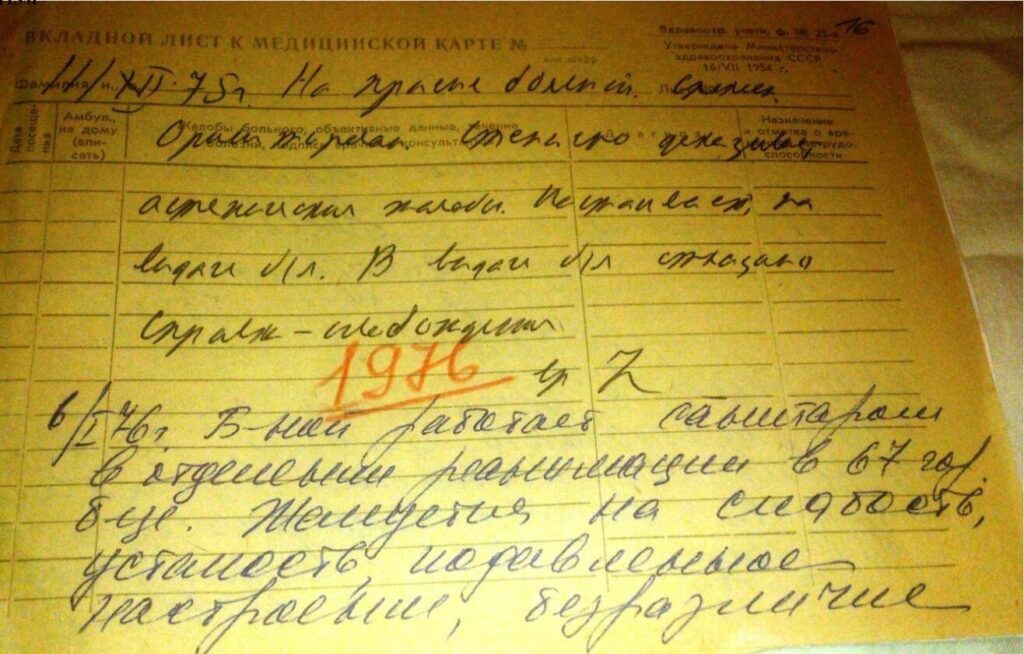 ВКЛАДНОЙ ЛИСТ К МЕДИЦИНСКОЙ КАРТЕ №
Здравоохр. учетн. ф. № 25-в
16
Утверждена Министерством
здравоохранения СССР
16/VII 1954 г.
Фамилия, и.,
11/XII-75г. На приеме больной.
Дата посеще-ния
Амбул., на дому (впи-сать)
Жалобы больного, объективные данные, течение
Диагноз
Назначение
и отметка о вре-
трудо-
способности
астенические жалобы. Настаивает на
выдаче б/л. В выдаче б/л отказано
Справк - освобождения
1976
6/I 76г. Б-ной работает санитаром
в отделении реанимации в 67 гор.
б-це. Жалуется на слабость,
усталость, подавленное
настроение, безразличие